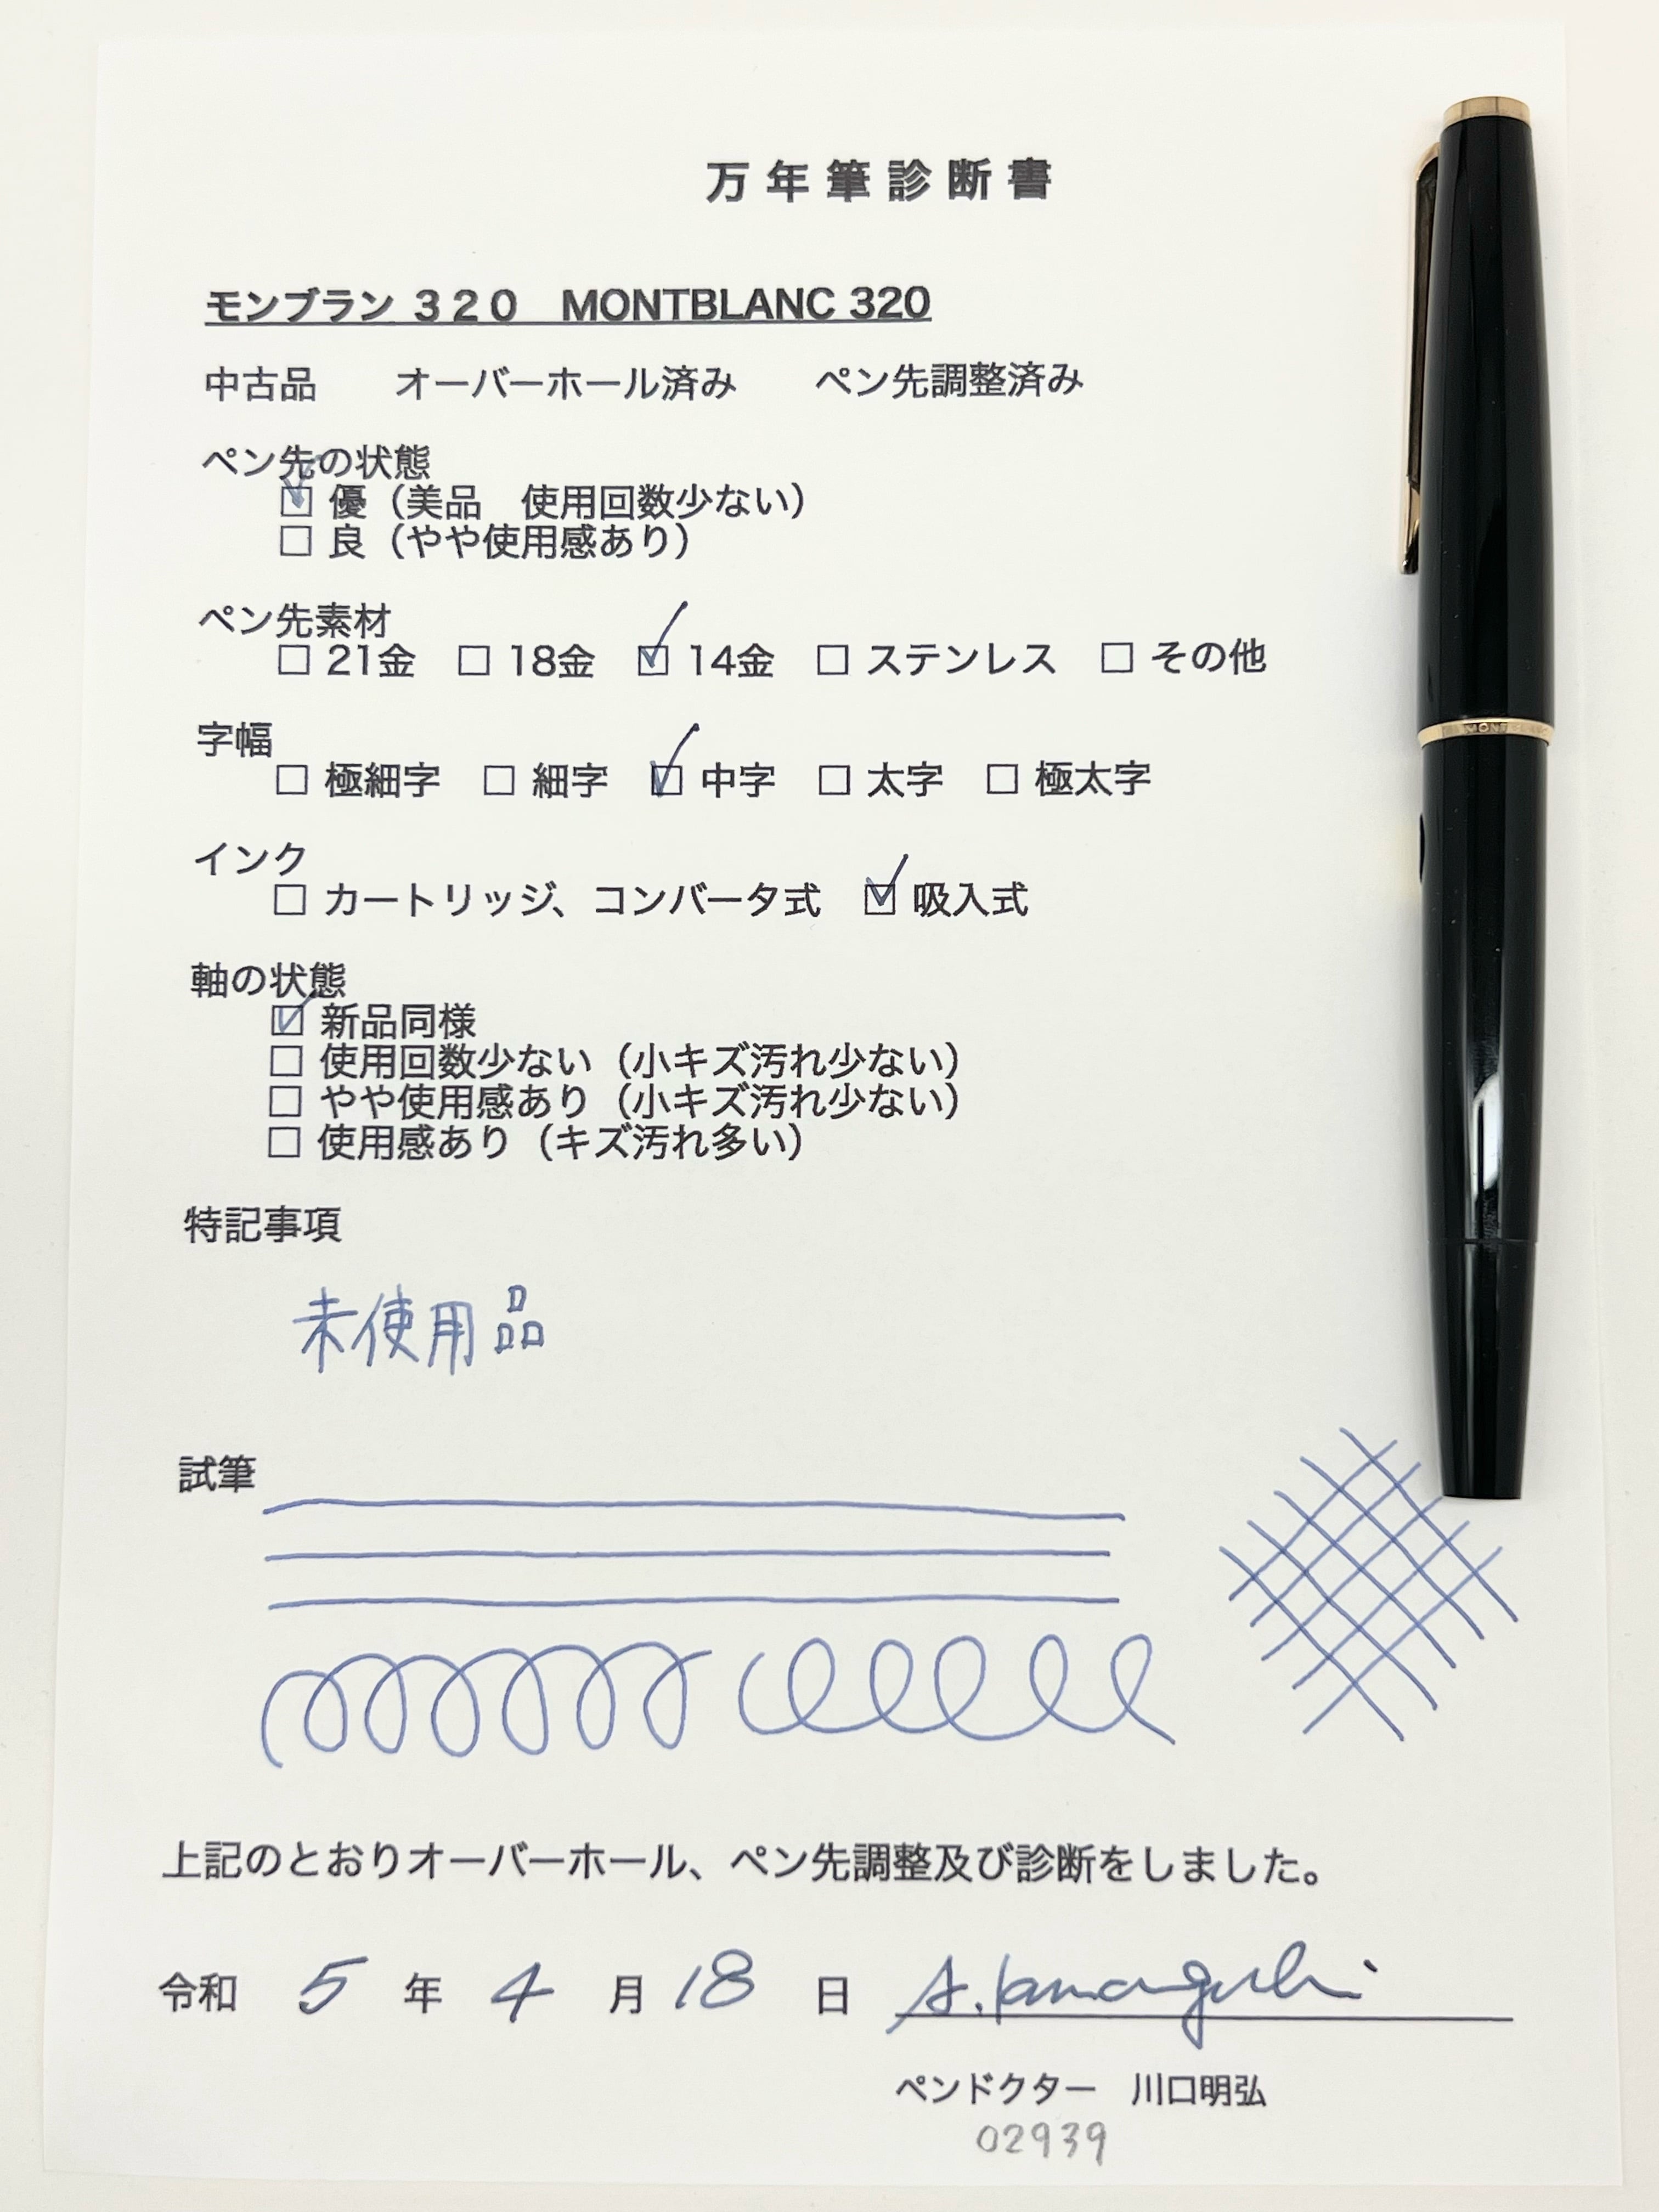 万年筆診断書
モンブラン ３２０　MONTBLANC 320
中古品　　オーバーホール済み　　ペン先調整済み
ペン先の状態
☑ 優（美品　使用回数少ない）
☐ 良（やや使用感あり）
ペン先素材
☐ 21金　☐ 18金　☑ 14金　☐ ステンレス　☐ その他
字幅
☐ 極細字　☐ 細字　☑ 中字　☐ 太字　☐ 極太字
インク
☐ カートリッジ、コンバータ式　☑ 吸入式
軸の状態
☑ 新品同様
☐ 使用回数少ない（小キズ汚れ少ない）
☐ やや使用感あり（小キズ汚れ少ない）
☐ 使用感あり（キズ汚れ多い）
特記事項
未使用品
試筆
上記のとおりオーバーホール、ペン先調整及び診断をしました。
令和　5　年　4　月　18　日
ペンドクター　川口明弘
02939